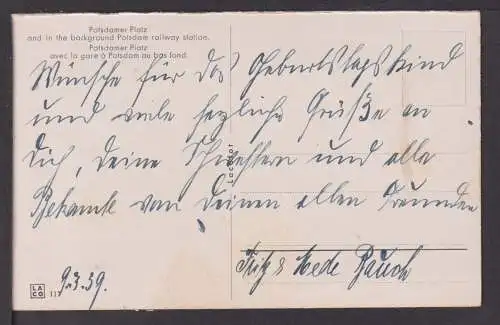 Potsdamer Platz
and in the background Potsdam railway station.
Potsdamer Platz
avec la gare à Potsdam au bas fond.
Wünsche für das Geburtstagskind
und viele herzliche Grüße an
Dich, Deine Schwestern und alle
Bekannte von Deinen alten Freunden
Fritz & Mede Bauch
9.3.39.
LACO 117
Lacolor